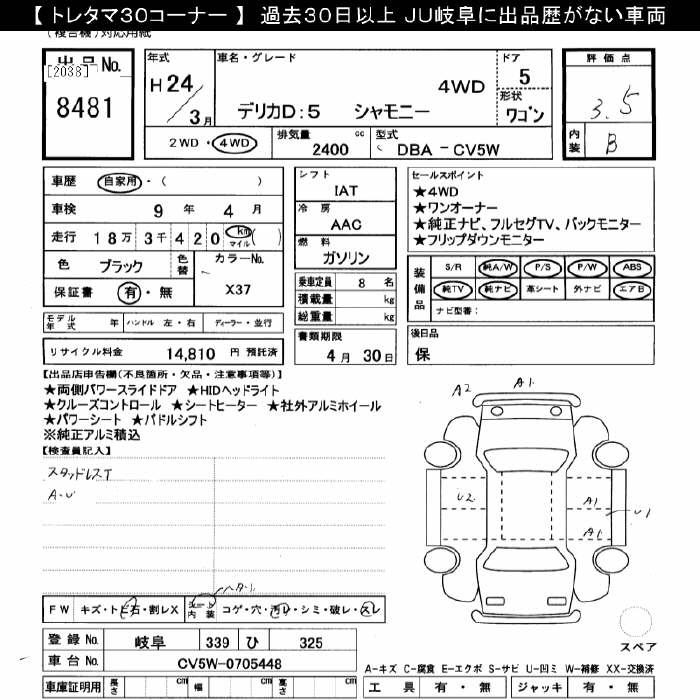 【 トレタマ30コーナー 】 過去30日以上 JU岐阜に出品歴がない車両
(複合機)対応用紙
出品No.
[2038]
8481
年式 H24/3月
車名・グレード
4WD
デリカD:5 シャモニー
ドア 5
形状 ワゴン
2WD・4WD
排気量 2400 cc
型式 DBA-CV5W
評価点
3.5
内装 B
車歴 自家用・( )
車検 9年 4月
走行 18万3千420 km マイル ( )
色 ブラック 色替 カラーNo.
X37
保証書 有・無
モデル年式 年 ハンドル 左・右 ディーラー・並行
リサイクル料金 14,810 円 預託済
シフト
IAT
冷房
AAC
燃料
ガソリン
乗車定員 8 名
積載量 kg
総重量 kg
書類期限
4月30日
セールスポイント
★4WD
★ワンオーナー
★純正ナビ、フルセグTV、バックモニター
★フリップダウンモニター
装備品
S/R 純A/W P/S P/W ABS
純TV 純ナビ 革シート 外ナビ エアB
ナビ型番:
後日品
保
【出品店申告欄(不良箇所・欠品・注意事項等)】
★両側パワースライドドア ★HIDヘッドライト
★クルーズコントロール ★シートヒーター ★社外アルミホイール
★パワーシート ★パドルシフト
※純正アルミ積込
【検査員記入】
スタッドレスT
A-U
A2 A1
U2 A1
A1 U1
FW キズ・トビ石・割レX シート内装 コゲ・穴・汚レ・シミ・破レ・スレ
登録No. 岐阜 339 ひ 325
車台No. CV5W-0705448
車庫証明用 長さ cm 幅 cm 高さ cm
スペア
A-キズ C-腐食 E-エクボ S-サビ U-凹ミ W-補修 XX-交換済
工具 有・無 ジャッキ 有・無